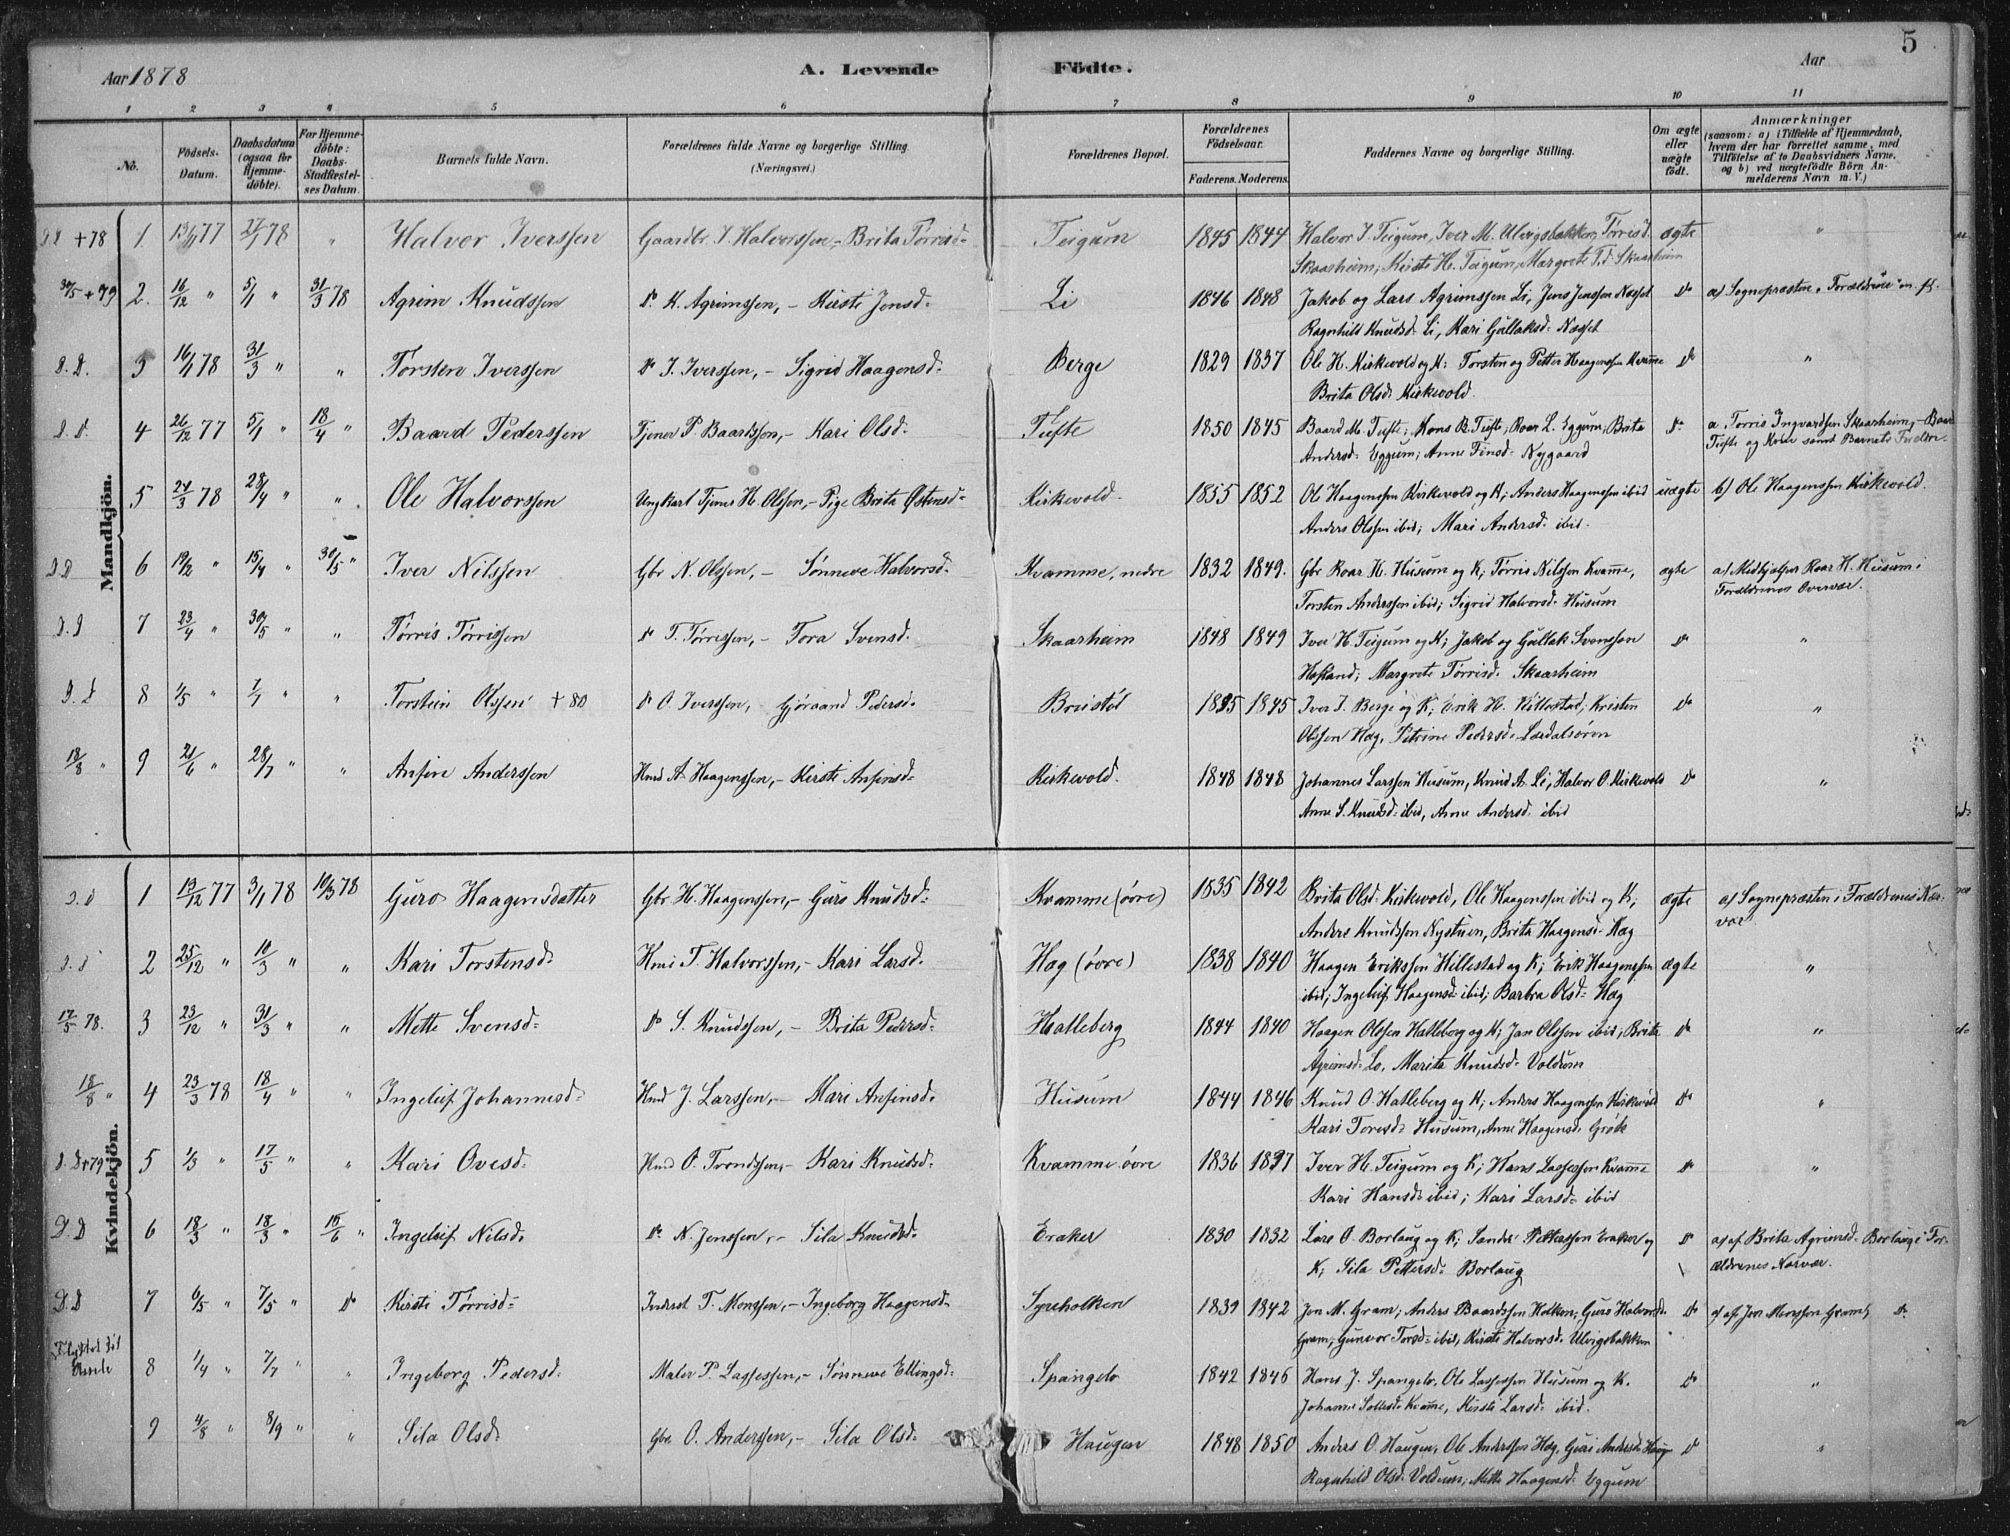 5
Aar 1878
A. Levende Födte.
Aar
1 2 3 4 5 6 7 8 9 10 11
No.
Födsels-Datum.
Daabsdatum (ogsaa for Hjemme-döbte).
For Hjemme-döbte: Daabs-Stadfæstel-ses Datum.
Barnets fulde Navn.
Forældrenes fulde Navne og borgerlige Stilling.
(Næringsvei.)
Forældrenes Bopæl.
Forældrenes Födselsaar.
Faderens. Moderens.
Faddernes Navne og borgerlige Stilling.
Om ægte eller uægte födt.
Anmærkninger
(saasom: a) i Tilfælde af Hjemmedaab, hvem der har forrettet samme, med Tilföielse af to Daabsvidners Navne, og b) ved uægtefödte Börn An-melderens Navn m. V.)
Mandkjön.
D.D +78 1. 13/11 77 27/1 78 " Halvor Iverssen Gaardbr. I. Halvorssen, - Brita Tørrisd= Teigum 1845 1844 Halvor I. Teigum, Iver M. Ulvigsbakken, Tørris d. ægte "
Skaarheim, Kirsti H. Teigum, Margrete T.d. Skaarheim
30/5 +79 2. 16/12 " 5/1 " 31/3 78 Agrim Knudssen Do K. Agrimssen, - Kirsti Jensd= Li 1846 1848 Jakob og Lars Agrimssen Li, Jens Jenssen Næsset Do a) Sognepræsten,
Ragnhild Knudsd= Li, Kari Gullaksd= Næsset
D.D. 3 16/1 78 31/3 " " Tørsten Iverssen Do I. Iverssen, - Sigrid Haagensd= Berge 1829 1837 Ole H. Kirkevold og K; Torsten og Petter Haagenssen Kvamme Do "
Brita Olsd= Kirkevold.
D.D. 4 26/12 77 5/1 " 18/4 " Baard Pederssen Tjener P. Baardssen, - Kari Olsd= Tufte 1850 1845 Baard M. Tufte; Mons B. Tufte, Roar L. Eggum, Brita Do a. Tørris Ingvardsen Skaarheim,
Andersd= Eggum; Anne Finsd= Nygaard Tufte og Kone samt Barnets
5 24/3 78 28/4 " " Ole Halvorssen Ungkarl Tjener H. Olssen, - Pige Brita Østensd= Kirkevold. 1855 1852 Ole Haagenssen Kirkevold og K; Anders Haagenssen ibid uægte b) Ole Haagenssen Kirkevold.
Anders Olssen ibid; Mari Andersd= ibid.
D D 6 19/2 " 15/4 " 30/5 " Iver Nilssen Gbr N. Olssen, - Sønneve Halvorsd= Kvamme, nedre 1832 1849. Gbr Roar H. Husum og K; Tørris Nilssen Kvamme, ægte a) Medhjælper Roar H. Husum i
Torsten Anderssen ibid; Sigrid Halvorsd= Husum Forældrenes Overvær.
D.D 7 23/4 " 30/5 " " Tørris Tørrissen Do T. Tørrissen, - Tora Svensd. Skaarheim 1848 1849 Iver H. Teigum og K; Jakob og Gullak Svenssen Do "
Hofland; Margrete Tørrisd= Skaarheim
D.D 8 1/5 " 7/7 " " Torstein Olssen +80 Do O. Iverssen, - Gjøraand Pedersd= Breistøl 1835 1845 Iver I. Berge og K; Erik H. Hillestad; Kristen Do "
Olssen Hæg, Petrine Pedersd= Lærdalsøren
18/8 " 9 21/6 " 28/7 " " Ansfin Anderssen Hmd A. Haagenssen, - Kirsti Ansfinsd= Kirkevold. 1848 1848 Johannes Larssen Husum, Knud A. Li, Halvor O. Kirkevold Do "
Anne S. Knudsd= ibid, Anne Andersd= ibid
Kvindekjön.
D.D 1 19/12 77 3/1 78 10/3 78 Guro Haagensdatter Gbr H. Haagenssen, - Guro Knudsd= Kvamme (øvre) 1835 1842 Brita Olsd= Kirkevold, Ole Haagenssen ibid og K; ægte a) Sognepræsten i Forældrenes Nær-
Anders Knudssen Nystuen, Brita Haagensd= Hæg vær
D.D 2 25/12 " 10/3 " " Kari Torstensd= Hmd T. Halvorssen, - Kari Larsd= Hæg (øvre) 1838 1840 Haagen Erikssen Hillestad og K; Erik Haagenssen ægte "
ibid; Ingeleif Haagensd= ibid; Barbra Olsd= Hæg
17/5 78. 3 23/12 " 31/3 " " Mette Svensd= Do S. Knudssen, - Brita Pedersd= Hatleberg 1844 1840 Haagen Olssen Hatleberg og K; Jan Olssen ibid; Brita Do "
Agrimsd= Lo, Marita Knudsd= Voldum
18/8 " 4 23/3 78 18/4 " " Ingeleif Johannesd= Hmd J. Larssen, - Mari Ansfinsd= Husum 1844 1846 Knud O. Hatleberg og K; Anders Haagenssen Kirkevold Do "
Kari Toresd= Husum, Anne Haagensd= Grøte
D.D +79 5 1/3 " 17/5 " " Kari Ovesd= Hmd O. Trondssen, - Kari Knudsd= Kvamme øvre 1836 1837 Iver H. Teigum og K; Hans Lassessen Kvamme Do "
Kari Hansd= ibid; Kari Larsd= ibid
D.D 6 18/3 " 18/3 " 15/6 " Ingeleif Nilsd= Do N. Jenssen, - Sila Knudsd= Eraker 1830 1832 Lars O. Borlaug og K; Sander Pettersen Eraker og Do a) af Brita Agrimsd= Borlaug i For-
K; Sila Pettersd= Borlaug ældrenes Nærvær.
D.D 7 6/5 " 7/5 " Do Kirsti Tørrisd= Inderst T. Monssen, - Ingeborg Haagensd= Syneholken 1839 1842 Jon M. Gram; Anders Baardssen Holken; Guro Halvorsd. Do a) af Jon Monssen Gram, Do
Gram, Gunvor Torsd= ibid, Kirsti Halvorsd= Ulvigsbakken
Flyttet til 8 1/4 " 7/7 " " Ingeborg Pedersd= Maler P. Lassessen, - Sønneve Ellingsd= Spangelo 1842 1846 Hans J. Spangelo, Ole Lassessen Husum og K. Do "
Johanne Kvamme, Kirsti Larsd= ibid.
9 4/8 " 8/9 " " Sila Olsd= Gbr. O. Anderssen, - Sila Olsd= Haugen 1848 1850 Anders O. Haugen, Ole Anderssen Hæg, Guri Andersd= Haug Do "
Ragnhild Olsd= Voldum, Mette Haagensd= Eggum